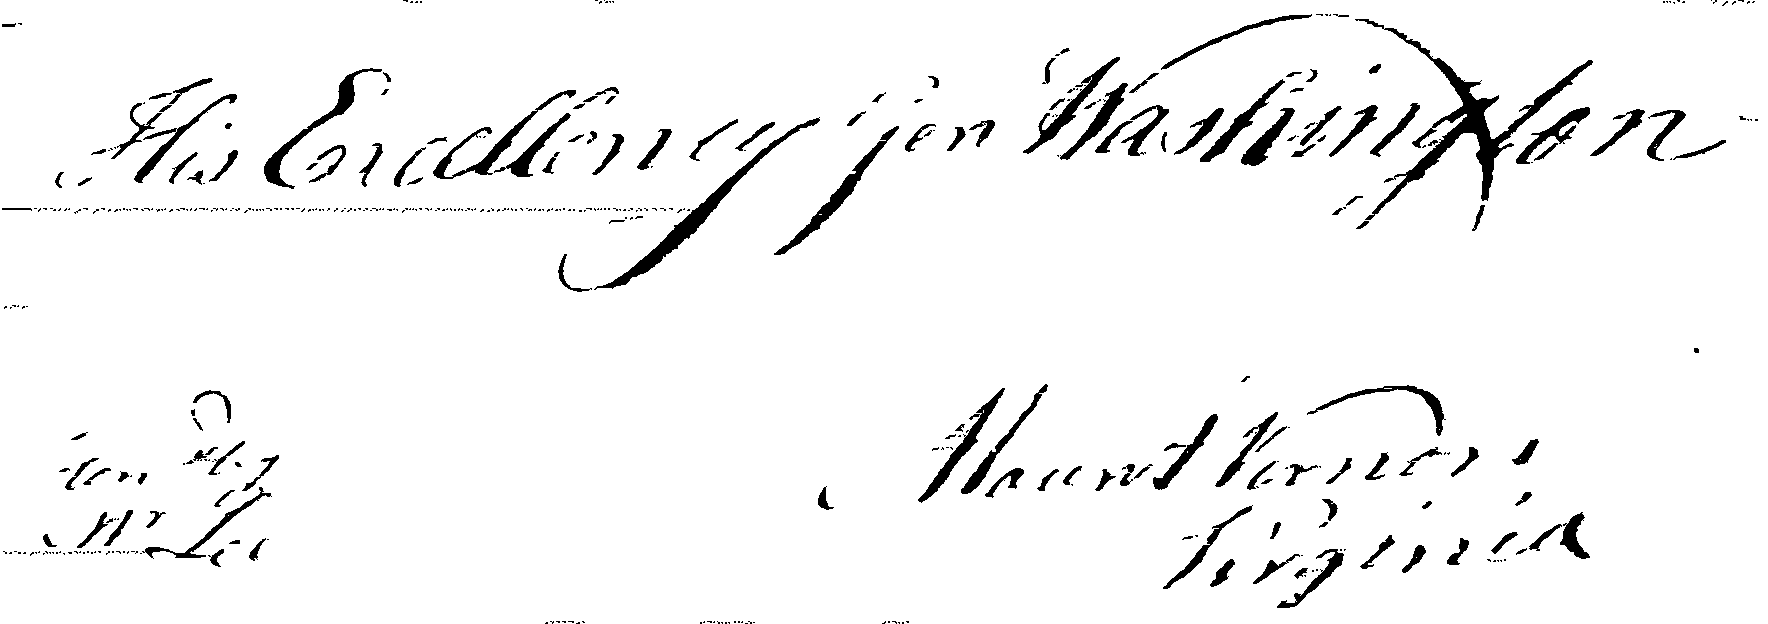 His Excellency Gen Washington
Mount Vernon
Virginia
Mr Lee